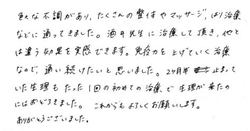 色々な不調があり、たくさんの整体やマッサージ、はり治療
などに通ってきました。酒井先生に治療して頂き、他と
は違う効果を実感できます。免疫力を上げていく治療
なので、通い続けたいと思いました。2ヶ月半止まって
いた生理もたった1回のおへその治療で生理が来たの
にはおどろきました。これからもよろしくお願いします。
ありがとうございました。